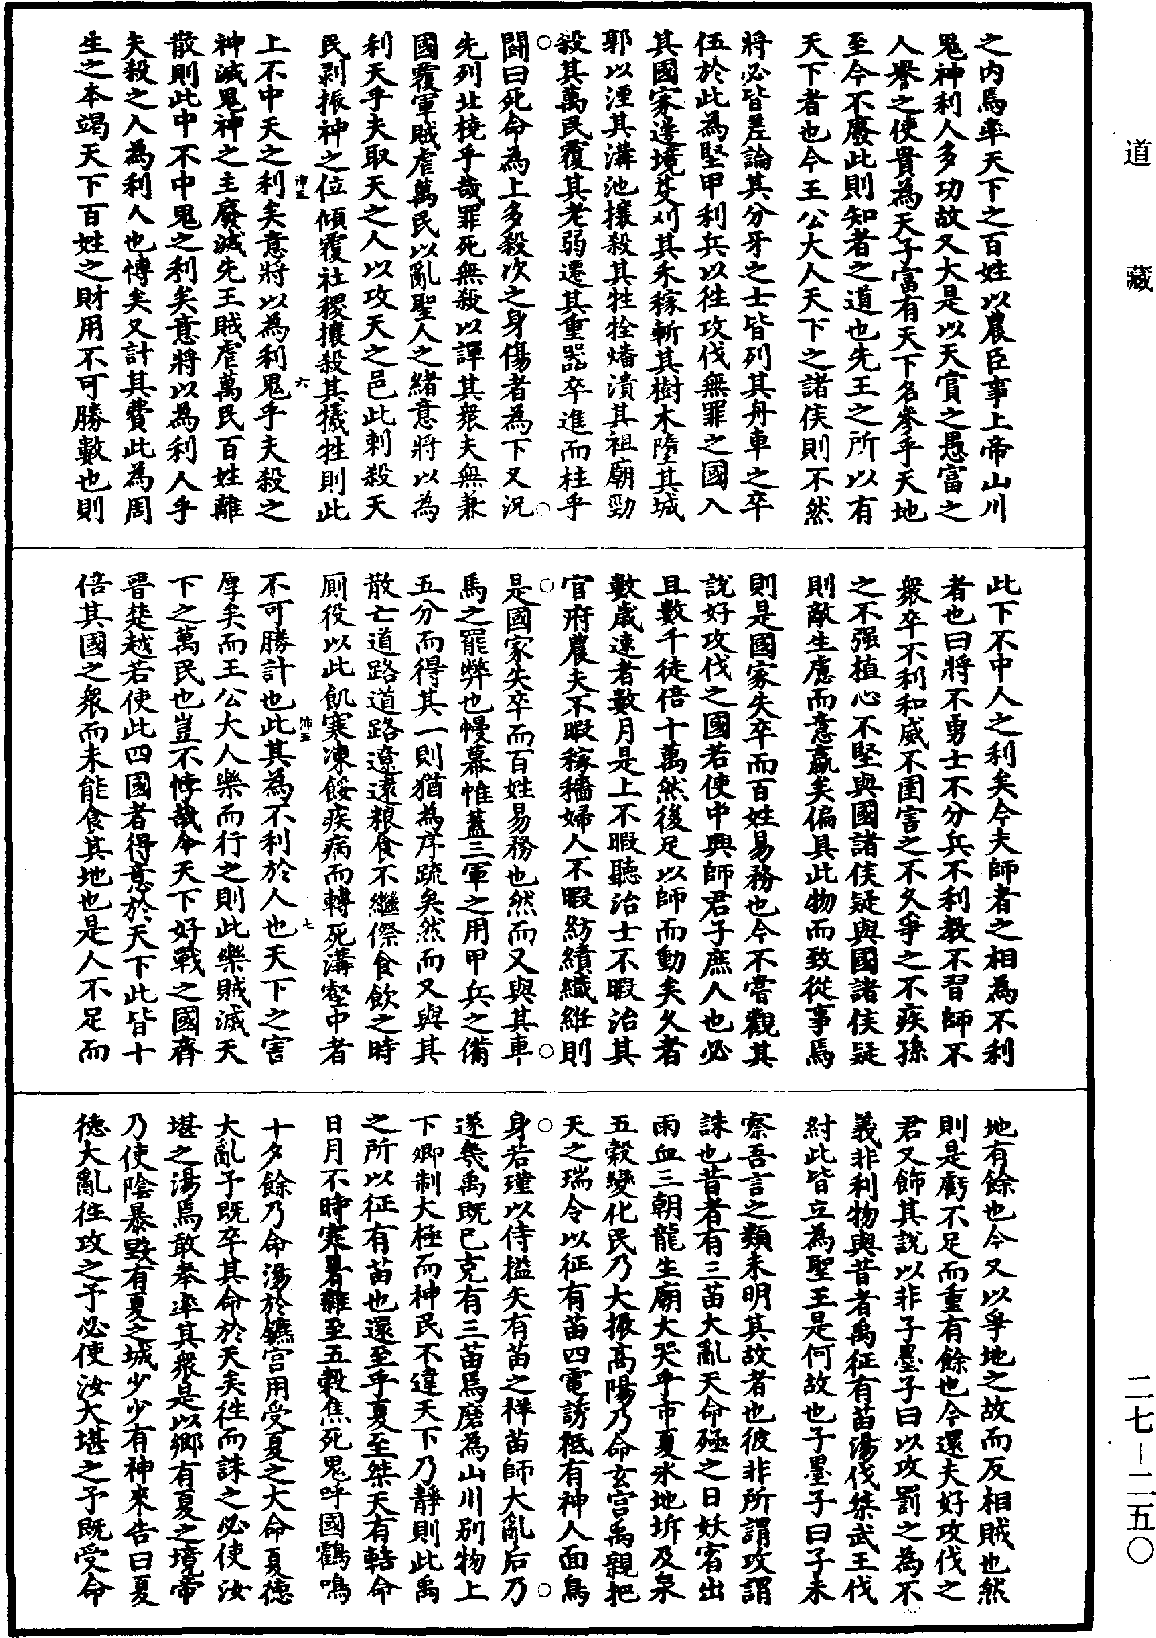 道藏
之内焉率天下之百姓以農臣事上帝山川
鬼神利人多功故又大是以天賞之愚富之
人譽之使貴為天子富有天下名參乎天地
至今不廢此則知者之道也先王之所以有
天下者也今王公大人天下之諸侯則不然
將必皆差論其分牙之士皆列其舟車之卒
伍於此為堅甲利兵以徃攻伐無罪之國入
其國家邊境芟刈其禾稼斬其樹木墮其城
郭以湮其溝池攘殺其牲牷燔潰其祖廟勁
殺其萬民覆其老弱遷其重器卒進而柱乎
鬪曰死命為上多殺次之身傷者為下又況
先列北橈乎哉罪死無殺以譂其衆夫無兼
國覆軍賊虐萬民以亂聖人之緒意將以為
利天乎夫取天之人以攻天之邑此刺殺天
民剥振神之位傾覆社稷攘殺其犧牲則此
上不中天之利矣意將以為利鬼乎夫殺之
神滅鬼神之主廢滅先王賊虐萬民百姓離
散則此中不中鬼之利矣意將以為利人乎
夫殺之人為利人也博矣又計其費此為周
生之本竭天下百姓之財用不可勝數也則
此下不中人之利矣今夫師者之相為不利
者也曰將不勇士不分兵不利教不習師不
衆卒不利和威不圉害之不久爭之不疾孫
之不强植心不堅與國諸侯疑與國諸侯疑
則敵生慮而意羸矣偏具此物而致從事焉
則是國家失卒而百姓易務也今不嘗觀其
說好攻伐之國若使中興師君子庶人也必
且數千徒倍十萬然後足以師而動矣久者
數歲速者數月是上不暇聽治士不暇治其
官府農夫不暇稼穡婦人不暇紡績織紝則
是國家失卒而百姓易務也然而又與其車
馬之罷弊也幔幕帷蓋三軍之用甲兵之備
五分而得其一則猶為序疏矣然而又與其
散亡道路道路遼遠粮食不繼傺食飲之時
厠役以此飢寒凍餒疾病而轉死溝壑中者
不可勝計也此其為不利於人也天下之害
厚矣而王公大人樂而行之則此樂賊滅天
下之萬民也豈不悖哉今天下好戰之國齊
晋楚越若使此四國者得意於天下此皆十
倍其國之衆而未能食其地也是人不足而
地有餘也今又以爭地之故而反相賊也然
則是虧不足而重有餘也今還夫好攻伐之
君又飾其說以非子墨子曰以攻罰之為不
義非利物與昔者禹征有苗湯伐桀武王伐
紂此皆立為聖王是何故也子墨子曰子未
察吾言之類未明其故者也彼非所謂攻謂
誅也昔者有三苗大亂天命殛之日妖宵出
雨血三朝龍生廟犬哭乎市夏氷地坼及泉
五穀變化民乃大振高陽乃命玄宫禹親把
天之瑞令以征有苗四電誘秪有神人面鳥
身若瑾以侍搤矢有苗之祥苗師大亂后乃
遂幾禹既巳克有三苗焉磨為山川别物上
下卿制大極而神民不違天下乃静則此禹
之所以征有苗也還至乎夏至桀天有轄命
日月不時寒暑雜至五穀焦死鬼呼國鶴鳴
十夕餘乃命湯於鑣宫用受夏之大命夏德
大亂予既卒其命於天矣徃而誅之必使汝
堪之湯焉敢奉率其衆是以鄉有夏之境帝
乃使陰暴毀有夏之城少少有神來告曰夏
德大亂徃攻之予必使汝大堪之予既受命
二七－二五〇